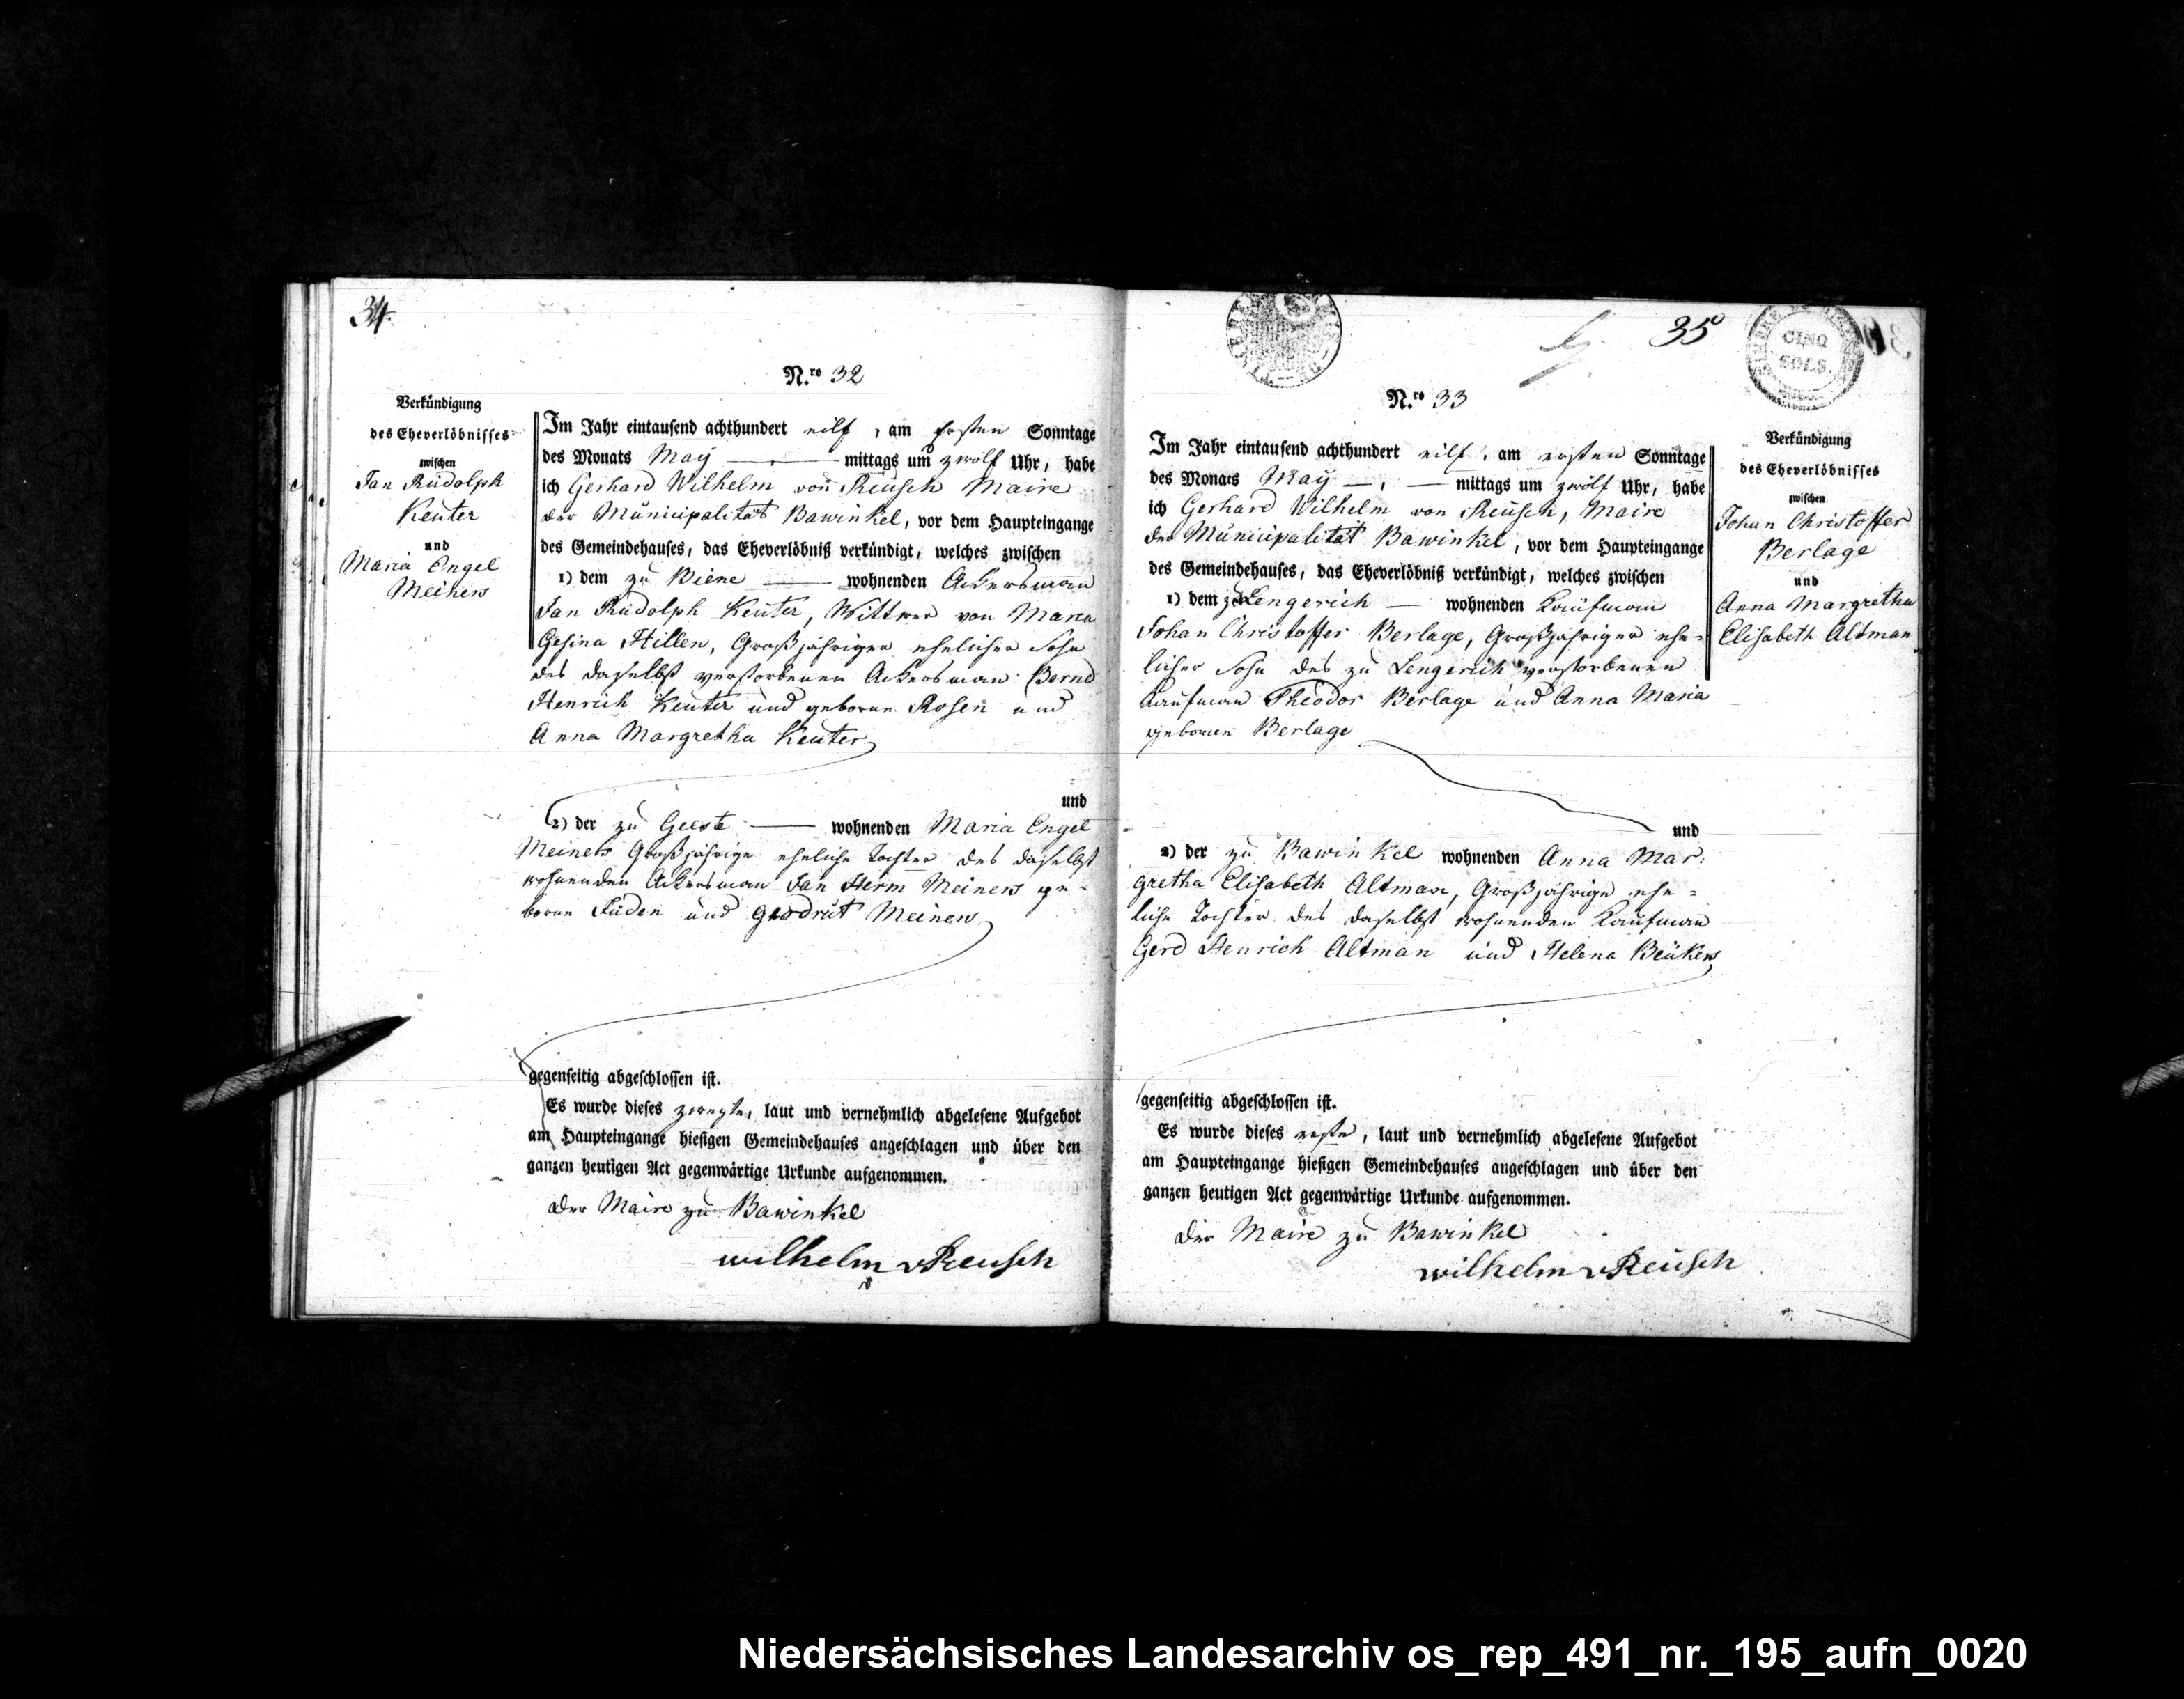 34.
N.ro 32
Verkündigung
des Eheverlöbnisses
zwischen
Jan Rudolph
Keuter
und
Maria Engel
Meiners
Im Jahr eintausend achthundert eilf, am ersten Sonntage
des Monats May — mittags um zwölf Uhr, habe
ich Gerhard Wilhelm von Reusch Maire
der Municipalität Bawinkel, vor dem Haupteingange
des Gemeindehauses, das Eheverlöbniß verkündigt, welches zwischen
1) dem zu Biene — wohnenden Ackersman
Jan Rudolph Keuter, Wittwer von Maria
Gesina Hillen, Großjähriger ehelicher Sohn
des daselbst verstorbenen Ackersman Bernd
Henrich Keuter und geborne Rosen und
Anna Margretha Keuter
und
2) der zu Geeste — wohnenden Maria Engel
Meiners Großjährige eheliche Tochter des daselbst
wohnenden Ackersman Jan Herm Meiners ge-
borne Lüden und Gerdrut Meiners
gegenseitig abgeschlossen ist.
Es wurde dieses zweyte, laut und vernehmlich abgelesene Aufgebot
am Haupteingange hiesigen Gemeindehauses angeschlagen und über den
ganzen heutigen Act gegenwärtige Urkunde aufgenommen.
Der Maire zu Bawinkel
wilhelm vReusch
35
CINQ
SOLS.
N.ro 33
Verkündigung
des Eheverlöbnisses
zwischen
Johan Christoffer
Berlage
und
Anna Margretha
Elisabeth Altman
Im Jahr eintausend achthundert eilf, am ersten Sonntage
des Monats May — mittags um zwölf Uhr, habe
ich Gerhard Wilhelm von Reusch, Maire
der Municipalität Bawinkel, vor dem Haupteingange
des Gemeindehauses, das Eheverlöbniß verkündigt, welches zwischen
1) dem zu Lengerich — wohnenden Kaufman
Johan Christoffer Berlage, Großjähriger ehe-
licher Sohn des zu Lengerich verstorbenen
Kaufman Theodor Berlage und Anna Maria
geboren Berlage
und
2) der zu Bawinkel wohnenden Anna Mar:
gretha Elisabeth Altman, Großjährige ehe-
liche Tochter des daselbst wohnenden Kaufman
Gerd Henrich Altman und Helena Beukers
gegenseitig abgeschlossen ist.
Es wurde dieses erste, laut und vernehmlich abgelesene Aufgebot
am Haupteingange hiesigen Gemeindehauses angeschlagen und über den
ganzen heutigen Act gegenwärtige Urkunde aufgenommen.
Der Maire zu Bawinkel
wilhelm vReusch
Niedersächsisches Landesarchiv os_rep_491_nr._195_aufn_0020